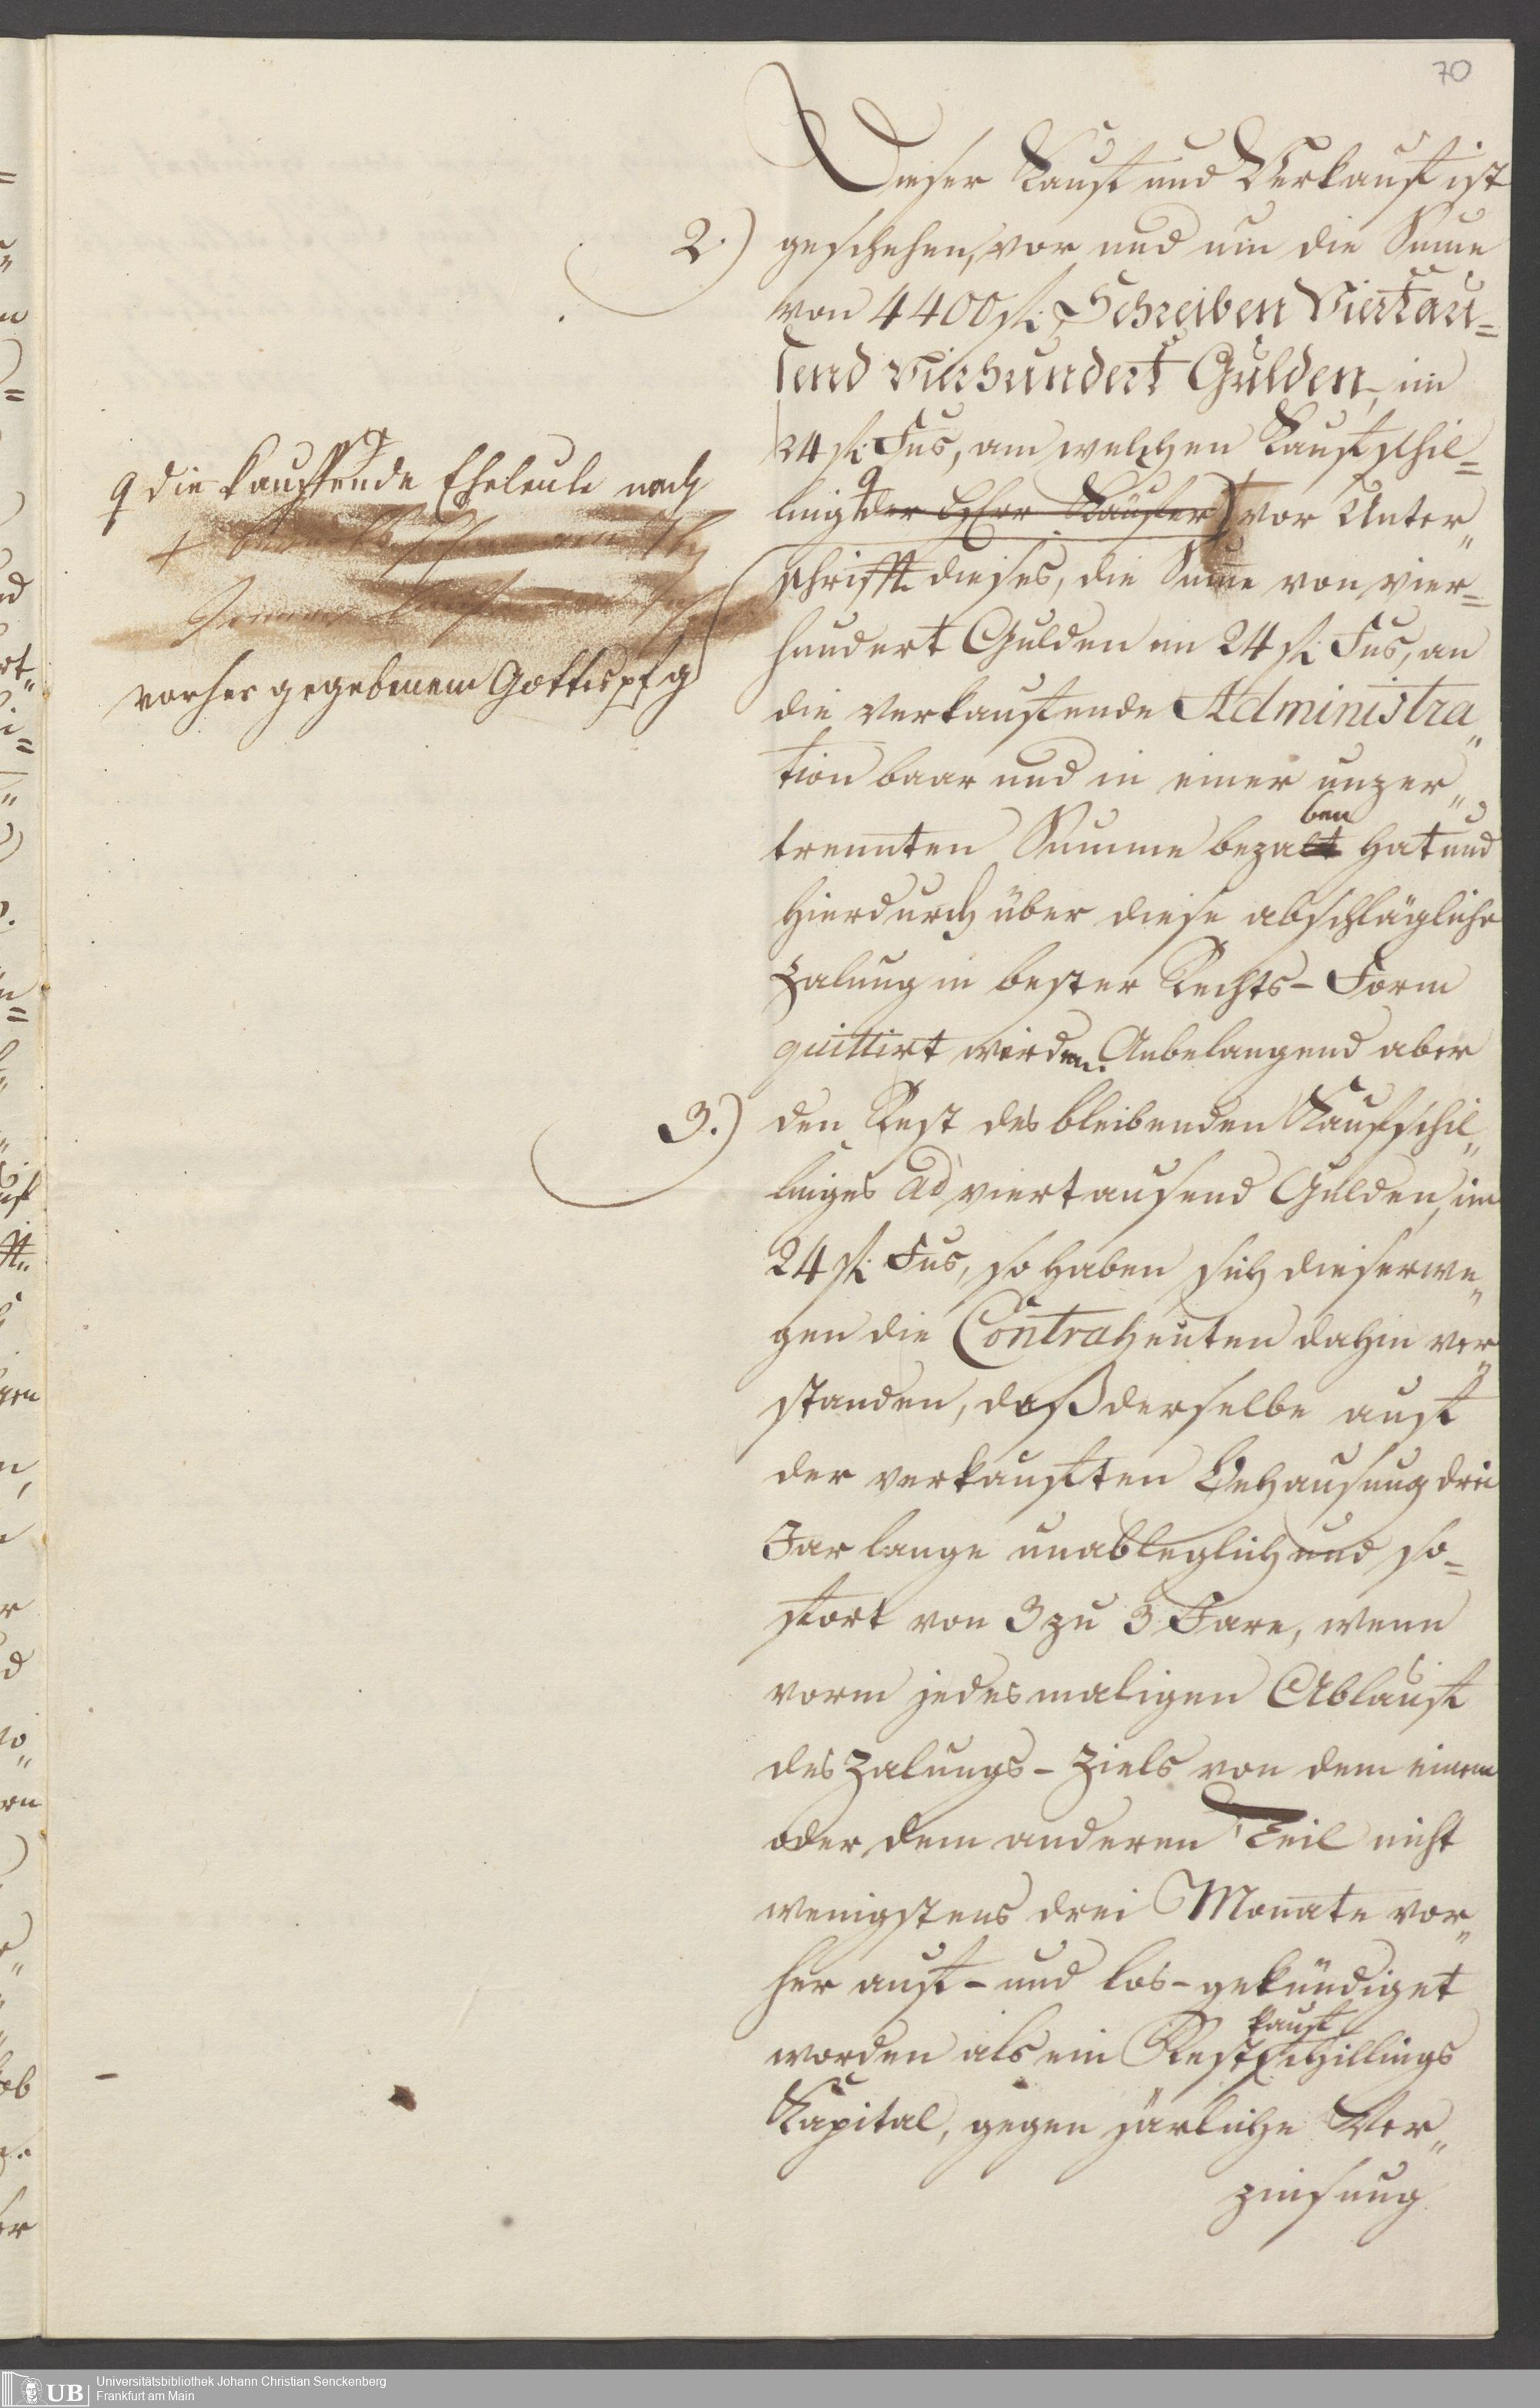 70
Dieser Kauf und Verkauf ist
2.) geschehen, vor und um die Sume
von 4400 fl: Schreiben Viertau=
send Vierhundert Gulden, im
24 fl: Fus, an welchem Kaufschil=
ling der Herr Käufer vor Unter„
schrifft dieses, die Sume von vier=
hundert Gulden im 24 fl: Fus, an
die verkaufende Administra„
tion baar und in einer unzer„
trennten Summe bezalt hat und
ben
hierdurch über diese abschlägliche
Zalung in bester Rechts-Form
quittirt werden. Anbelangend aber
3.) den Rest des bleibenden Kaufschil„
linges ad viertausend Gulden, im
24 fl: Fus, so haben sich dieserwe„
gen die Contrahenten dahin ver„
standen, daß derselbe auf
der verkauften Behausung drei
Jar lange unableglich und so=
fort von 3 zu 3 Jare, wenn
vorm jedesmaligen Ablauf
des Zalungs-Ziels von dem einen
oder dem anderen Teil nicht
wenigstens drei Monate vor„
her auf- und los-gekündiget
worden als ein Restschillings
kauf
Kapital, gegen järliche Ver„
zinsung
die kauffende Eheleute nach
vorher gegebenem Gottespfg
UB Universitätsbibliothek Johann Christian Senckenberg
Frankfurt am Main